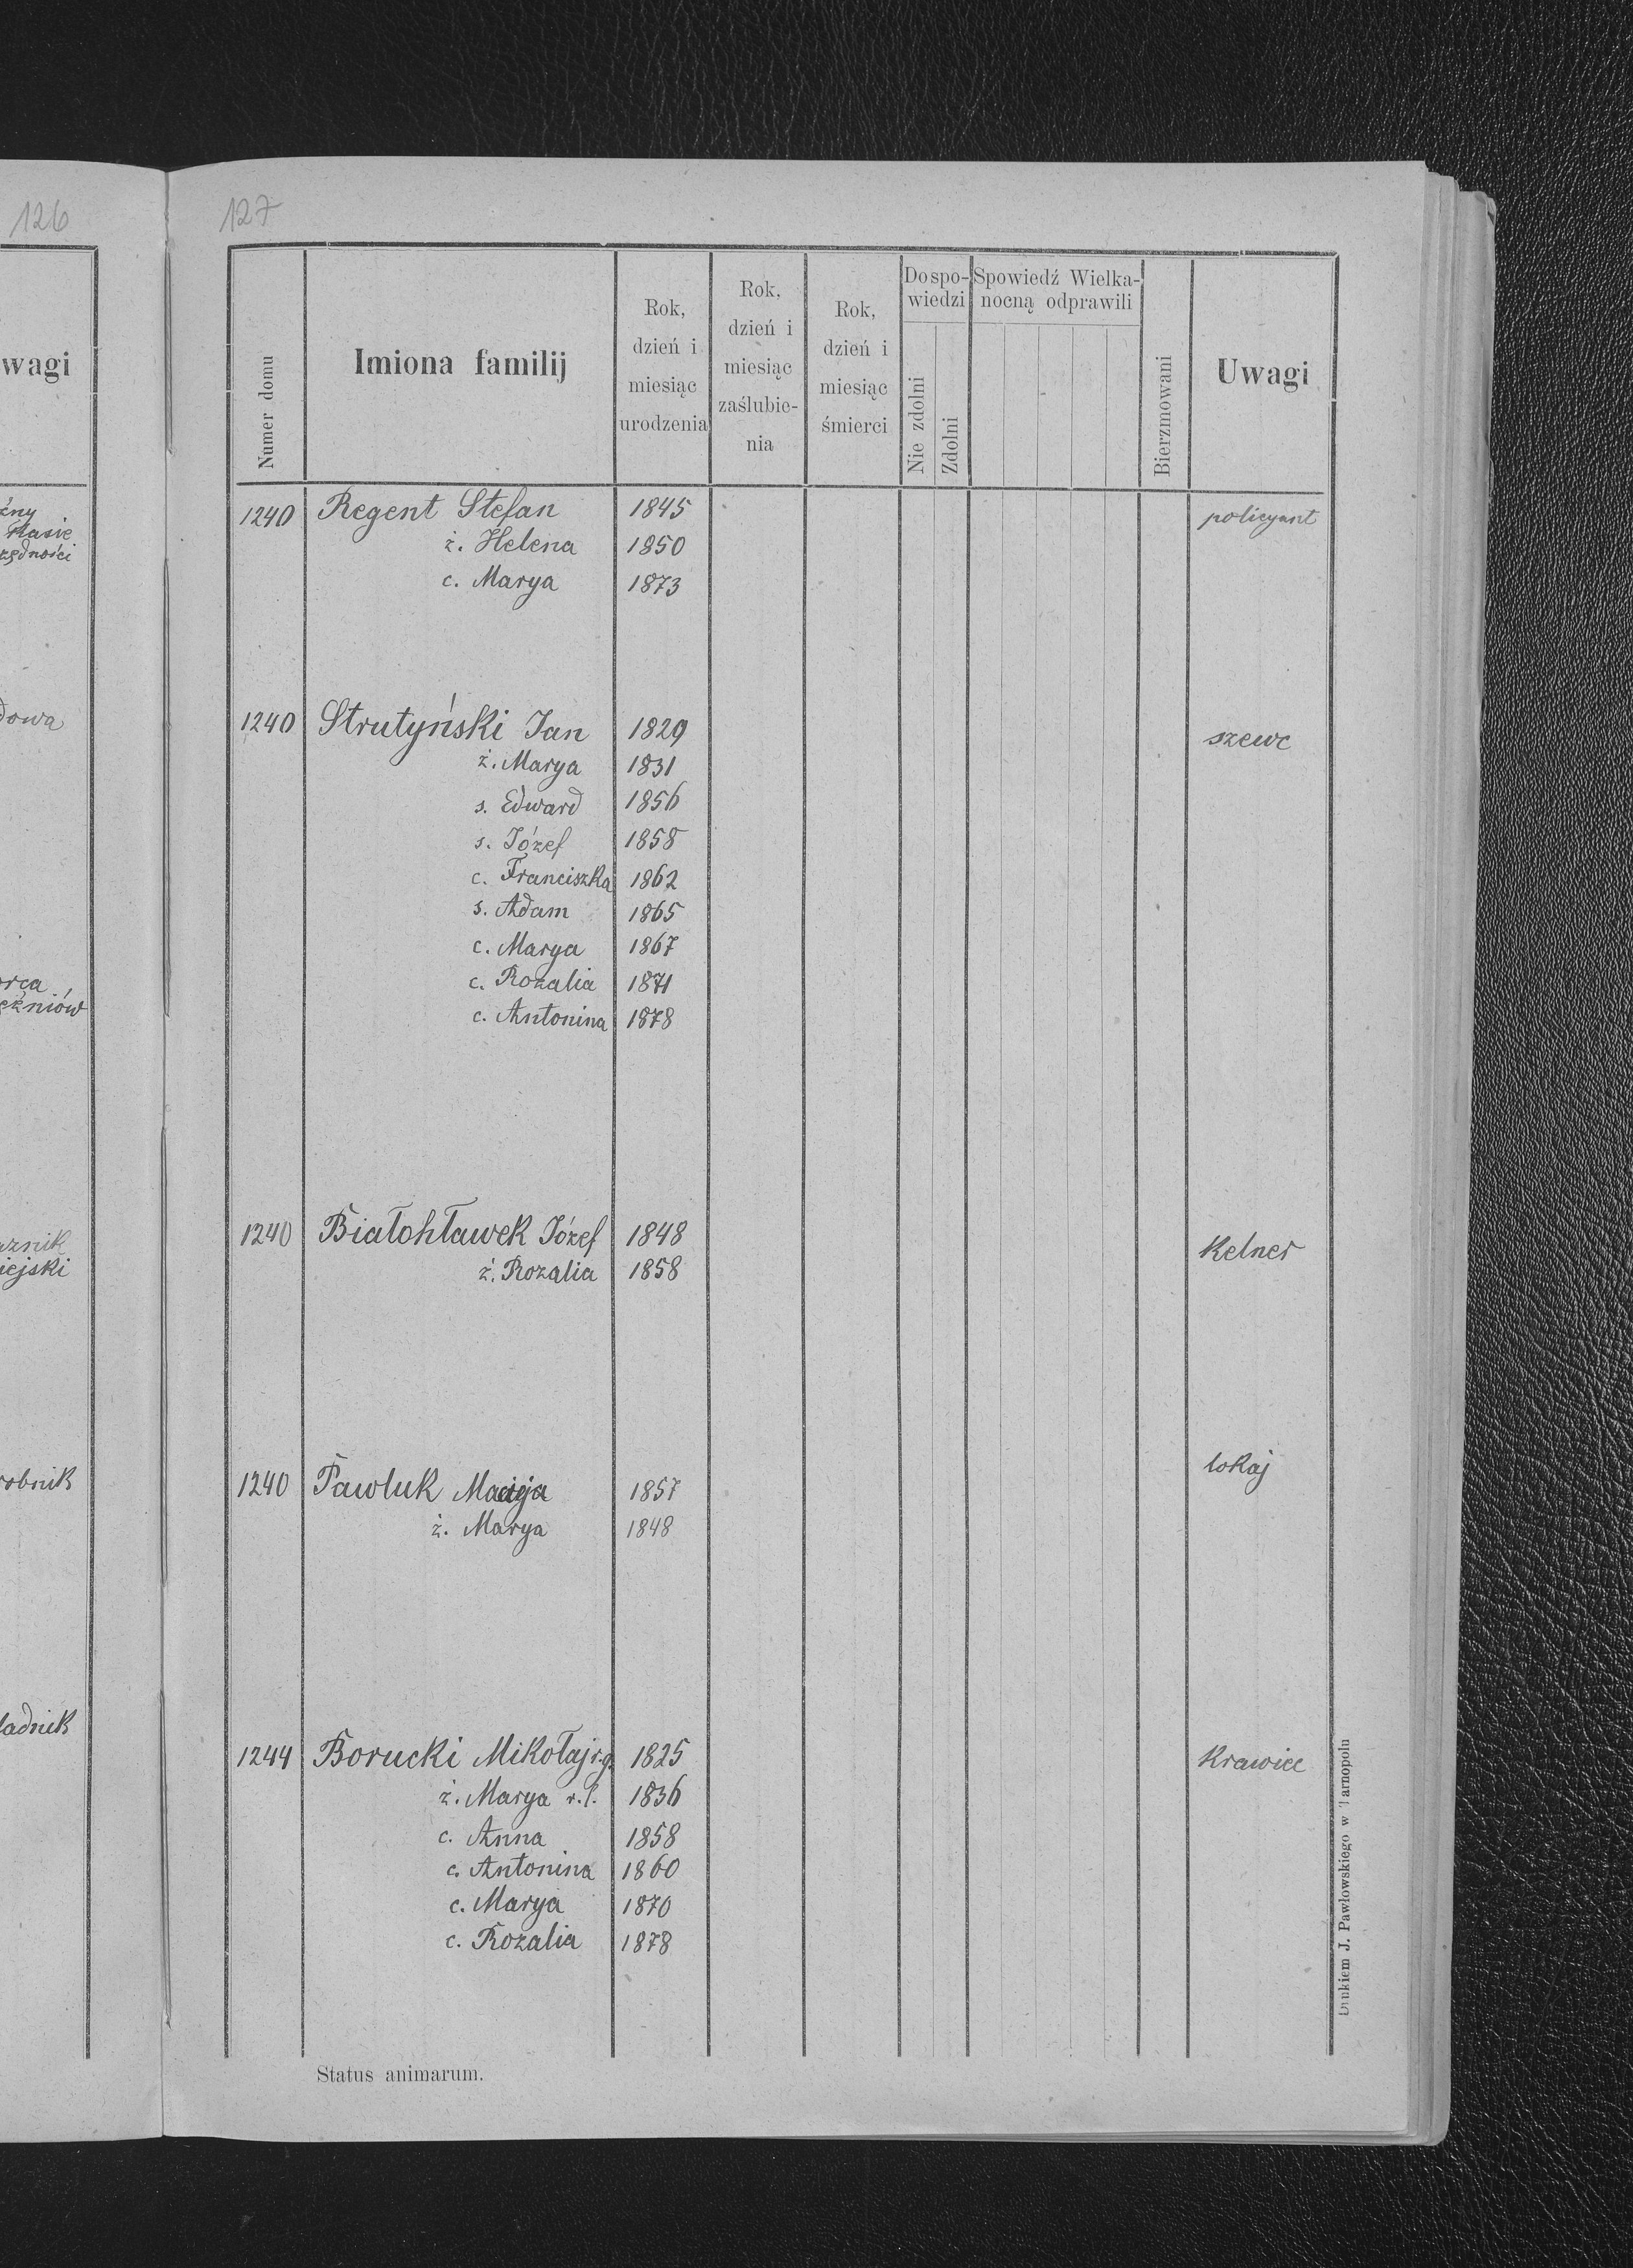 126
wagi
dowa
iejski
127
Numer domu
Imiona familij
Rok, dzień i miesiąc urodzenia
Rok, dzień i miesiąc zaślubienia
Rok, dzień i miesiąc śmierci
Do spowiedzi
Nie zdolni
Zdolni
Spowiedź Wielkanocną odprawili
Bierzmowani
Uwagi
1240 Regent Stefan 1845 policyant
ż. Helena 1850
c. Marya 1873
1240 Strutyński Jan 1829 szewc
ż. Marya 1831
s. Edward 1856
s. Józef 1858
c. Franciszka 1862
s. Adam 1865
c. Marya 1867
c. Rozalia 1871
c. Antonina 1878
1240 Białohławek Józef 1848 Kelner
ż. Rozalia 1858
1240 Pawluk 1857 lokaj
ż. Marya 1848
1244 Borucki Mikołaj r.g. 1825 Krawiec
ż. Marya r.l. 1836
c. Anna 1858
c. Antonina 1860
c. Marya 1870
c. Rozalia 1878
Status animarum.
Drukiem J. Pawłowskiego w Tarnopolu